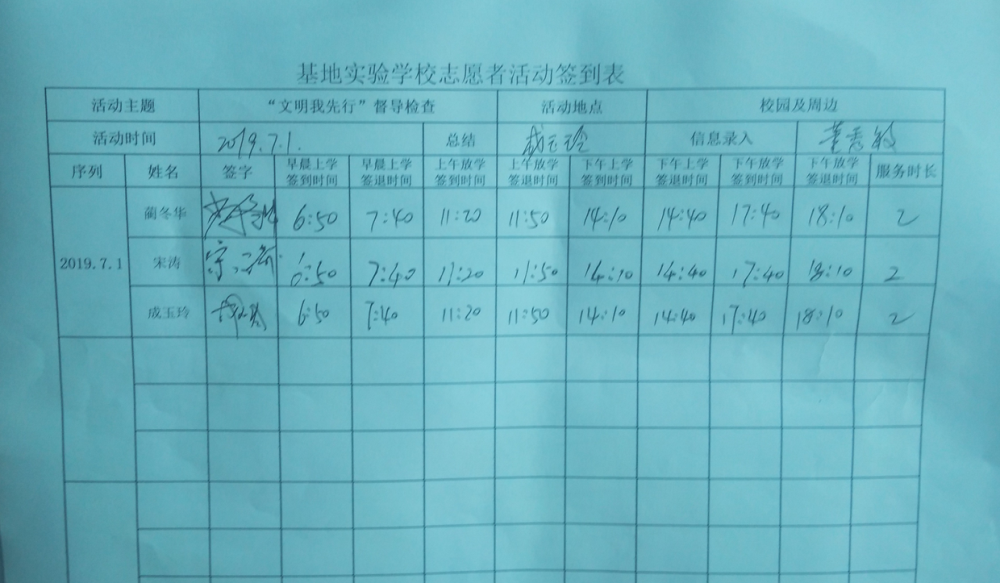 基地实验学校志愿者活动签到表
活动主题 “文明我先行”督导检查 活动地点 校园及周边
活动时间 2019.7.1. 总结 成玉玲 信息录入
序列 姓名 签字 早晨上学签到时间 早晨上学签退时间 上午放学签到时间 上午放学签退时间 下午上学签到时间 下午上学签退时间 下午放学签到时间 下午放学签退时间 服务时长
2019.7.1
蔺冬华 6:50 7:40 11:20 11:50 14:10 14:40 17:40 18:10 2
宋涛 宋涛 6:50 7:40 11:20 11:50 14:10 14:40 17:40 18:10 2
成玉玲 6:50 7:40 11:20 11:50 14:10 14:40 17:40 18:10 2